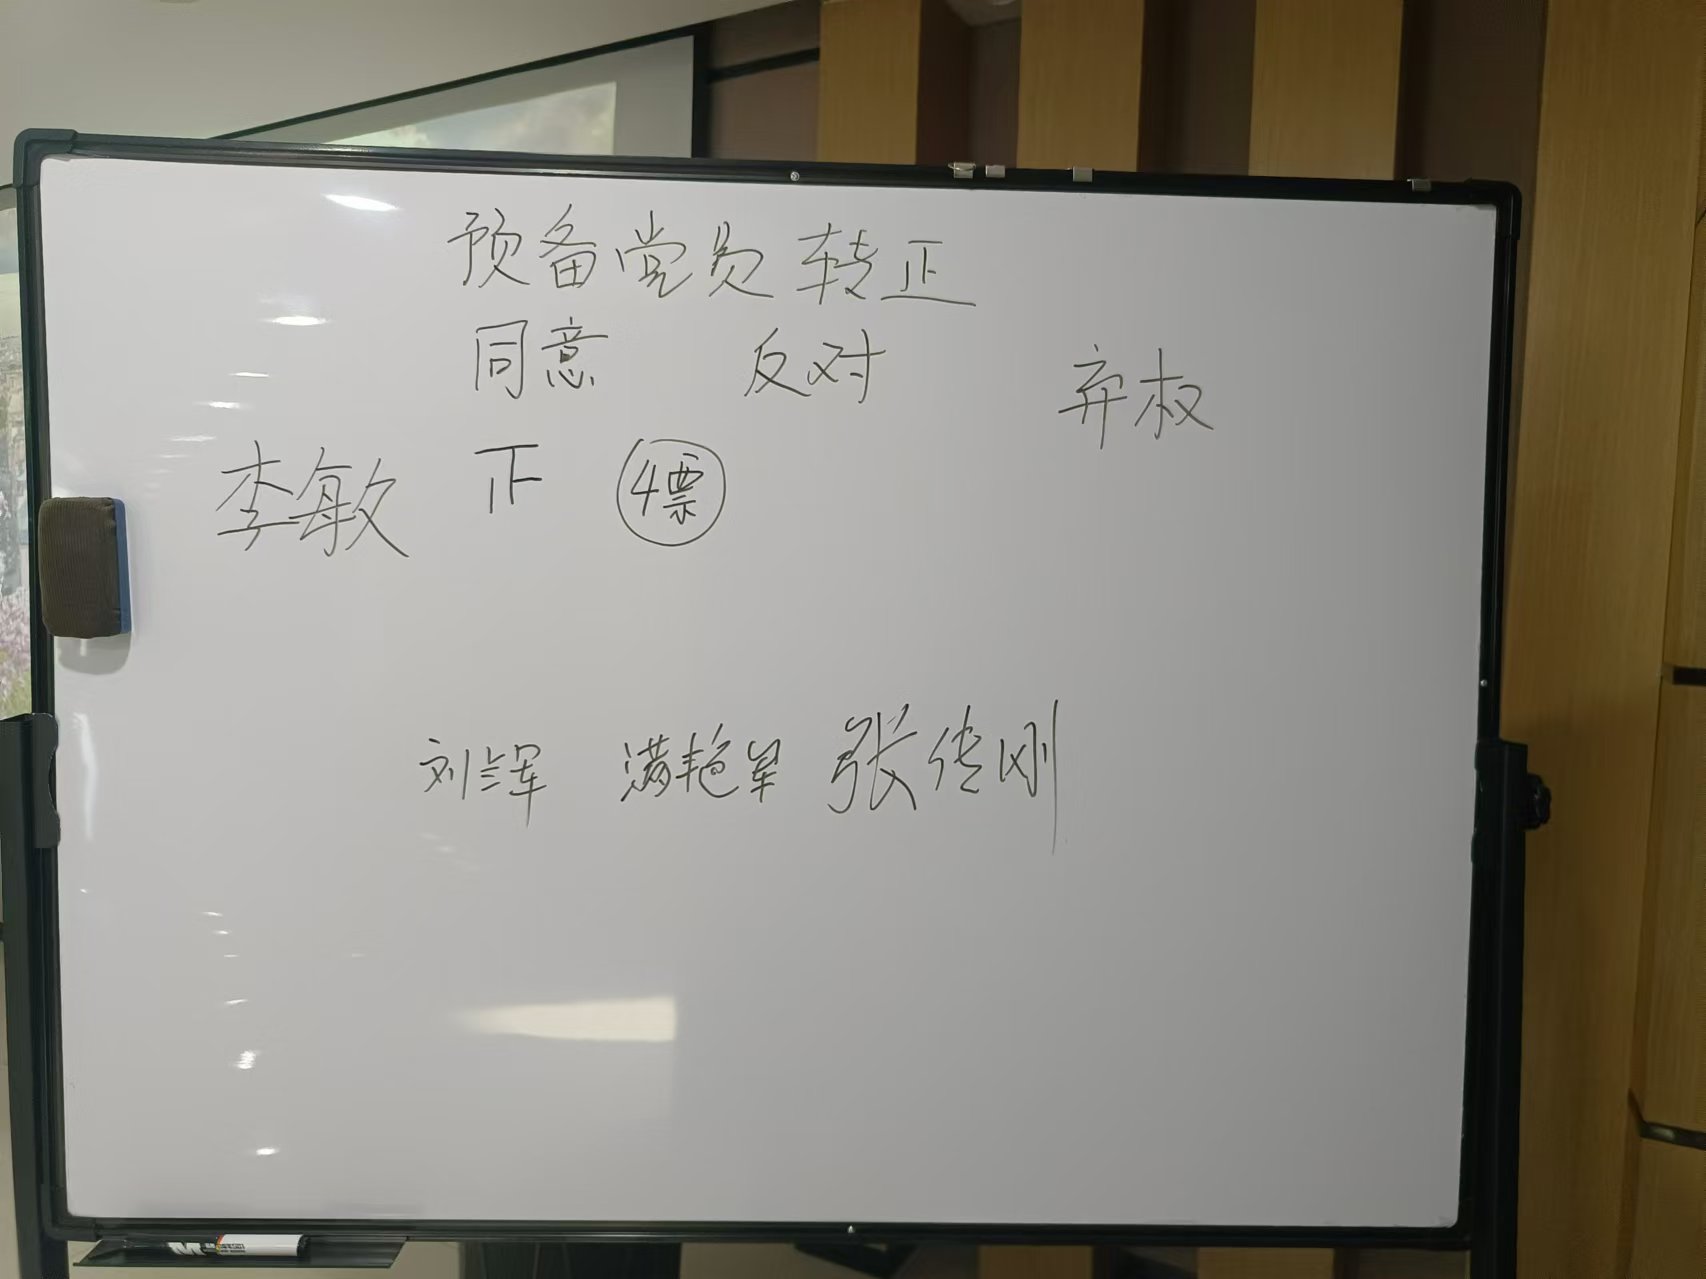 预备党员转正
同意 反对 弃权
李敏 正 4票
刘辉 满艳军 张传刚